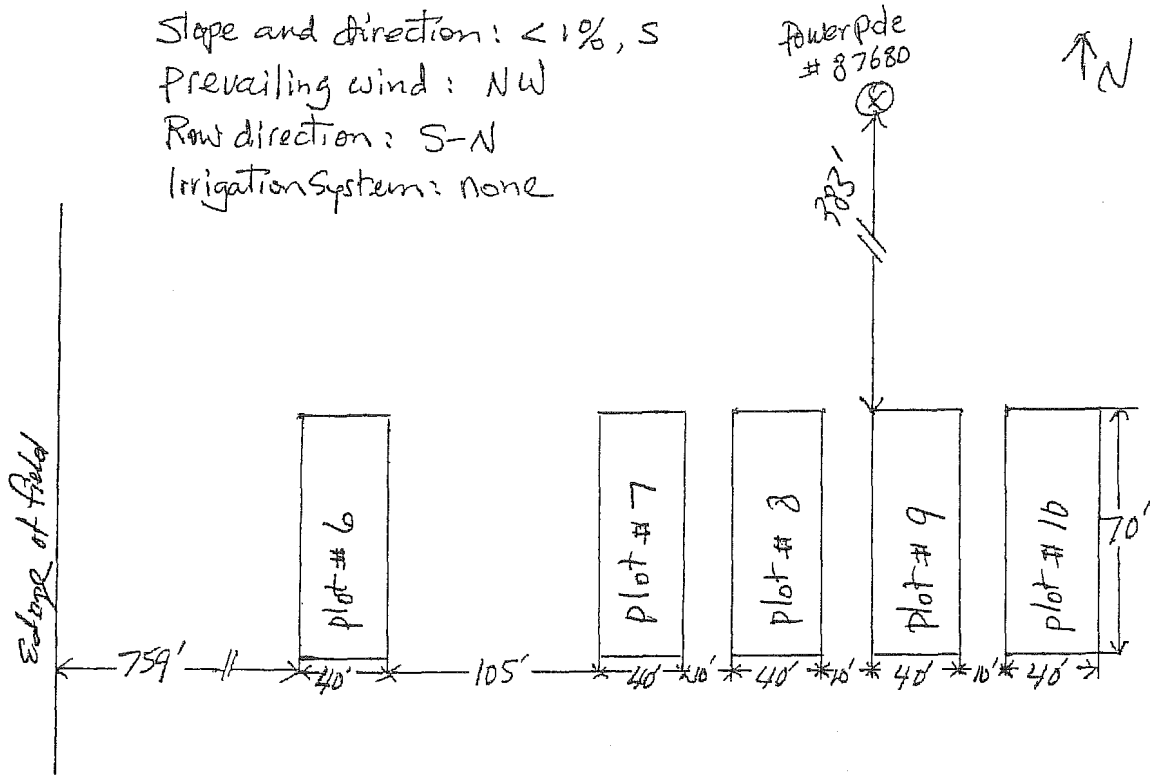 Slope and direction: < 1%, S
Prevailing wind: NW
Row direction: S-N
Irrigation System: none
Power pole
# 87680
N
383'
Edge of field
plot # 6
plot # 7
plot # 8
plot # 9
plot # 10
70'
759' 40' 105' 40' 10' 40' 10' 40' 10' 40'